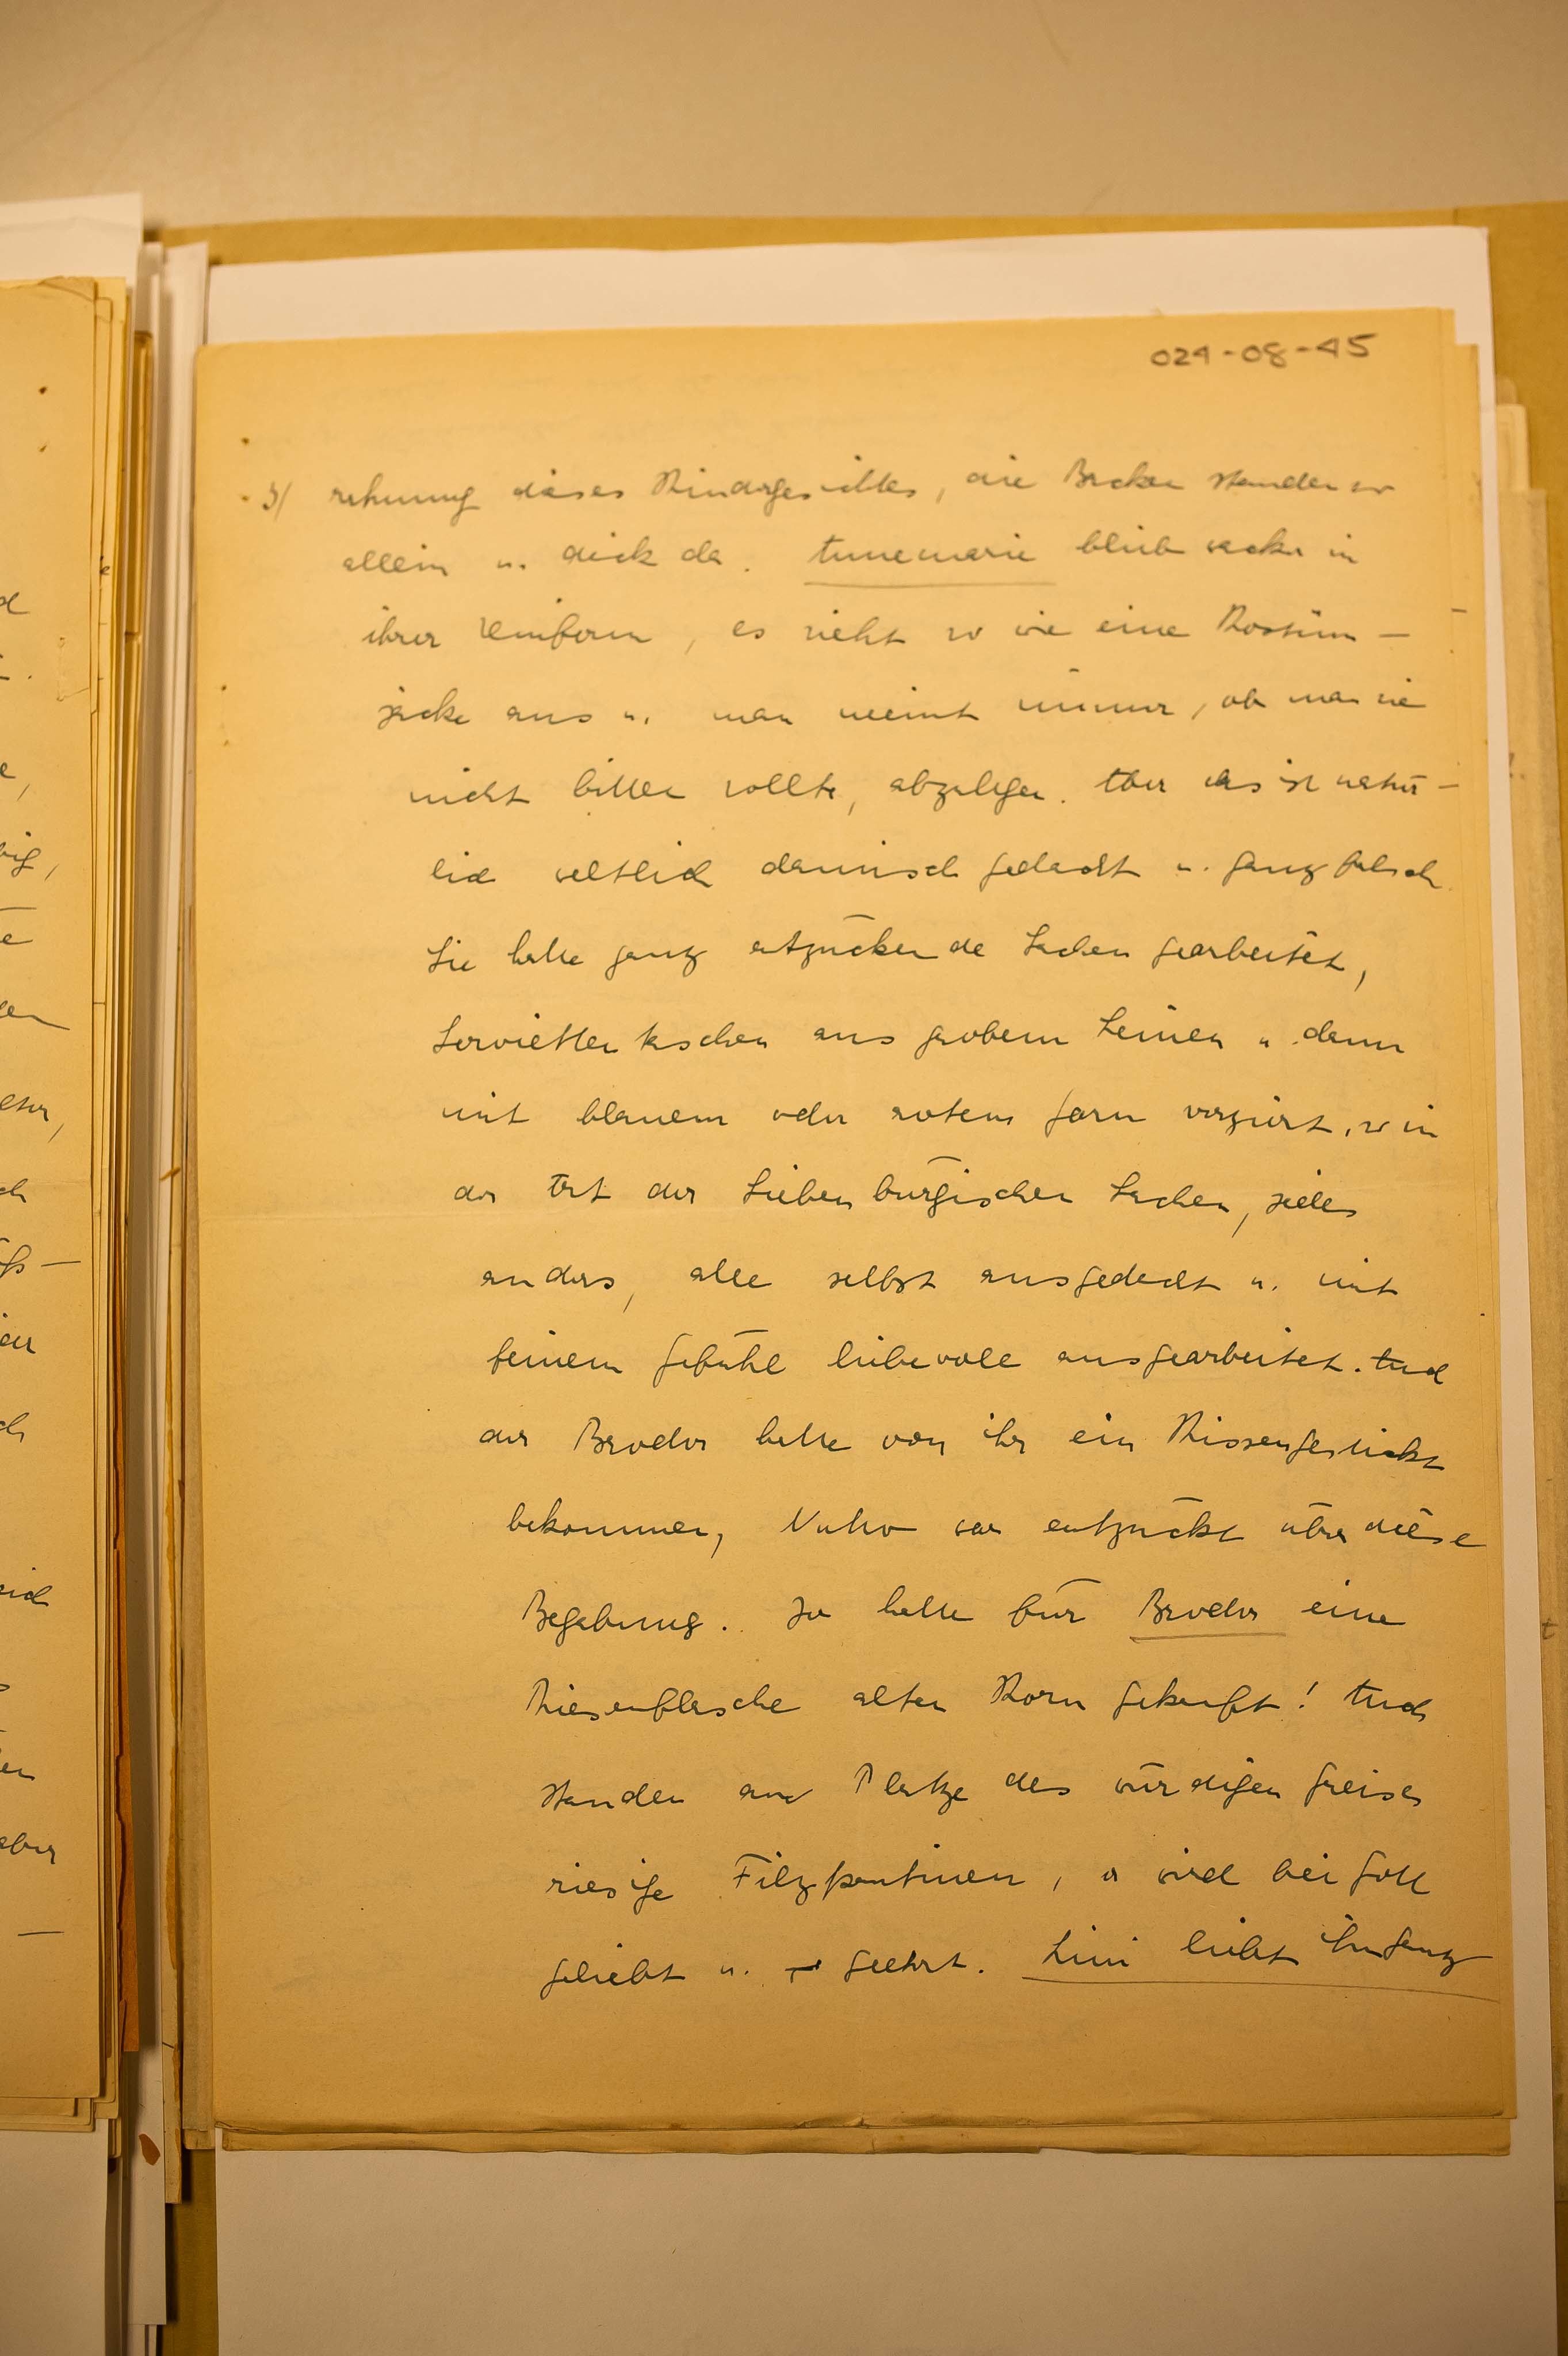 024-08-45
3/ nehmung dieses Kindergesichtes, die Backen standen so
allein u. dick da. Annemarie blieb wacker in
ihrer Uniform, es sieht so wie eine Kostüm-
jacke aus u. man meint immer, ob man sie
nicht bitten sollte, abzulegen. Aber das ist natür-
lich weltlich dämisch gedacht u. ganz falsch.
Sie hatte ganz entzückende Sachen gearbeitet,
Serviettentaschen aus grobem Leinen u. dann
mit blauem oder rotem Garn verziert, so in
der Art der Siebenbürgischen Sachen, jedes
anders, alle selbst ausgedacht u. mit
feinem Gefühl liebevoll ausgearbeitet. Und
der Broder hatte von ihr ein Kissen gestickt
bekommen, war entzückt über diese
Begabung. Ja hatte für Broder eine
Riesenflasche alten Korn gekauft! Und
standen am Platze des würdigen Greises
riesige Filzpantinen, er wird bei Gott
geliebt u. geehrt. Lini liebt ihn ganz